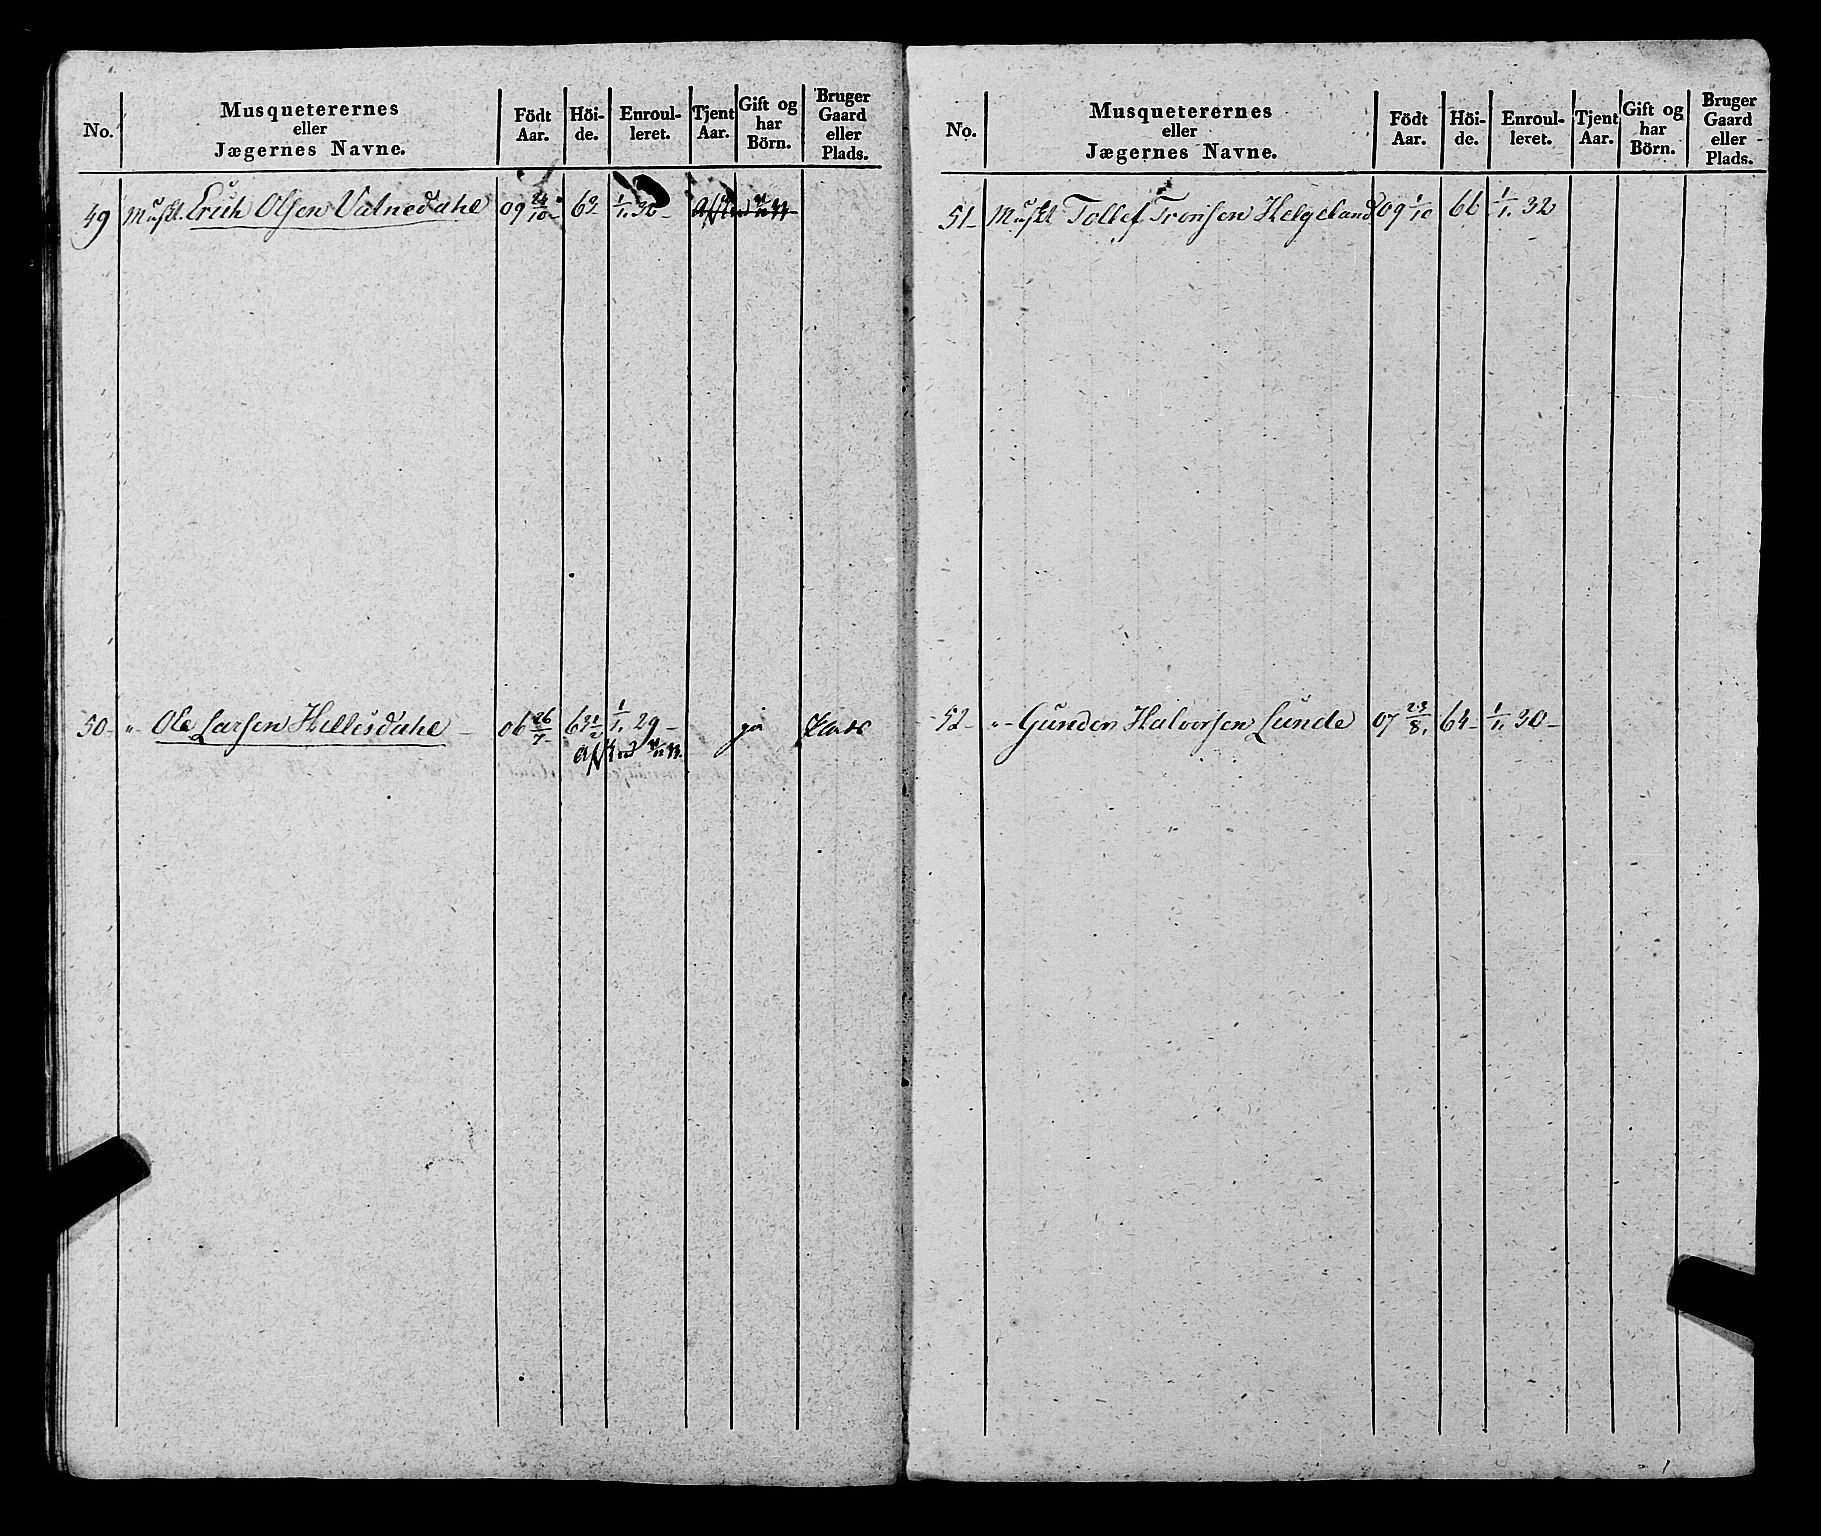 No.
Musqueterernes
eller
Jægernes Navne.
Födt
Aar.
Höi-
de.
Enroul-
leret.
Tjent
Aar.
Gift og
har
Börn.
Bruger
Gaard
eller
Plads.
49 Muskt. Erich Olsen Vatnedahl 09 24/10 - 63 1/1. 30 -
50 - " Ole Larsen Hellesdahl - 06 26/7 - 63 1/2 1/1. 29 - ja Plads
Afskud
No.
Musqueterernes
eller
Jægernes Navne.
Födt
Aar.
Höi-
de.
Enroul-
leret.
Tjent
Aar.
Gift og
har
Börn.
Bruger
Gaard
eller
Plads.
51 - Muskt Tollef Tronsen Helgeland 09 1/10 66 1/1. 32
52 - " - Gunder Halvorsen Lunde 07 23/8. 64 - 1/1. 30 -